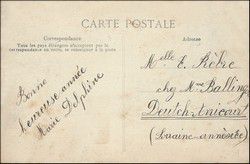 CARTE POSTALE
Correspondance
Tous les pays étrangers n'acceptent pas la
correspondance au verso, se renseigner à la poste
Adresse
Bonne
heureuse année
Marie Delphine
Melle E.
chez Mme Balling
Deutsch-Avricourt
(Lorraine annexée)